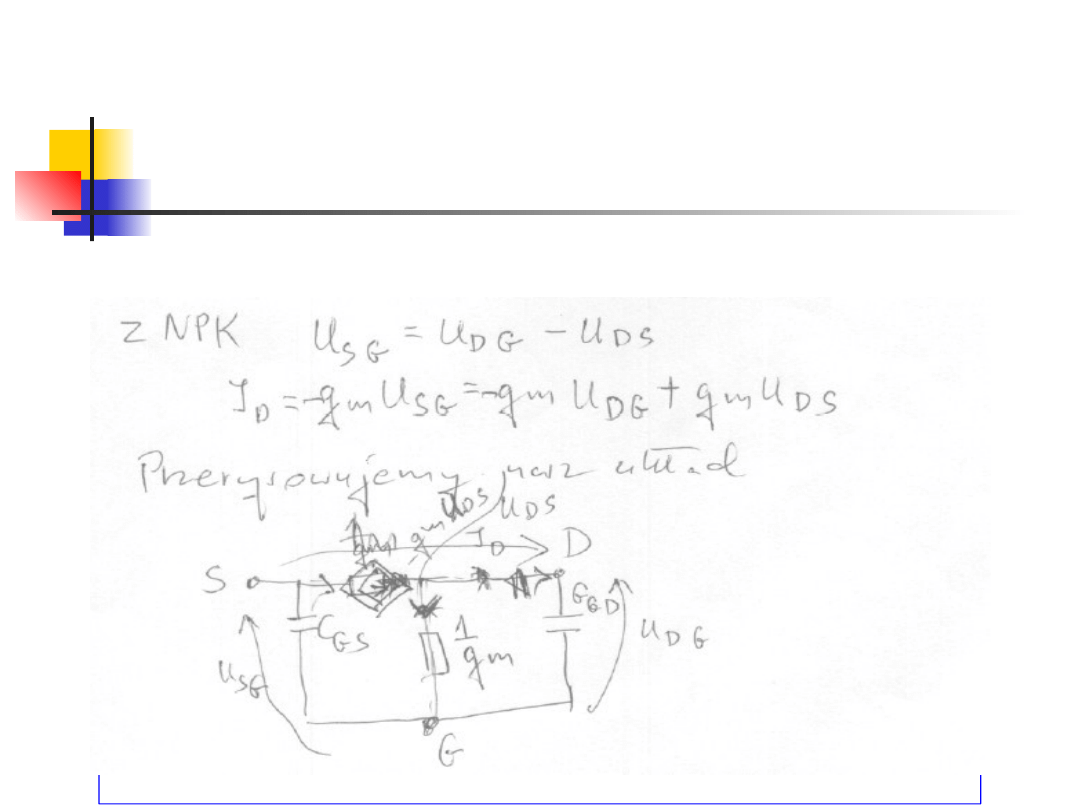 Z NPK U_SG = U_DG - U_DS
I_D = -gm U_SG = -gm U_DG + gm U_DS
Przerysowujemy nasz układ
gm U_DS U_DS
I_D D
S
C_GS 1/gm C_GD U_DG
U_SG
G